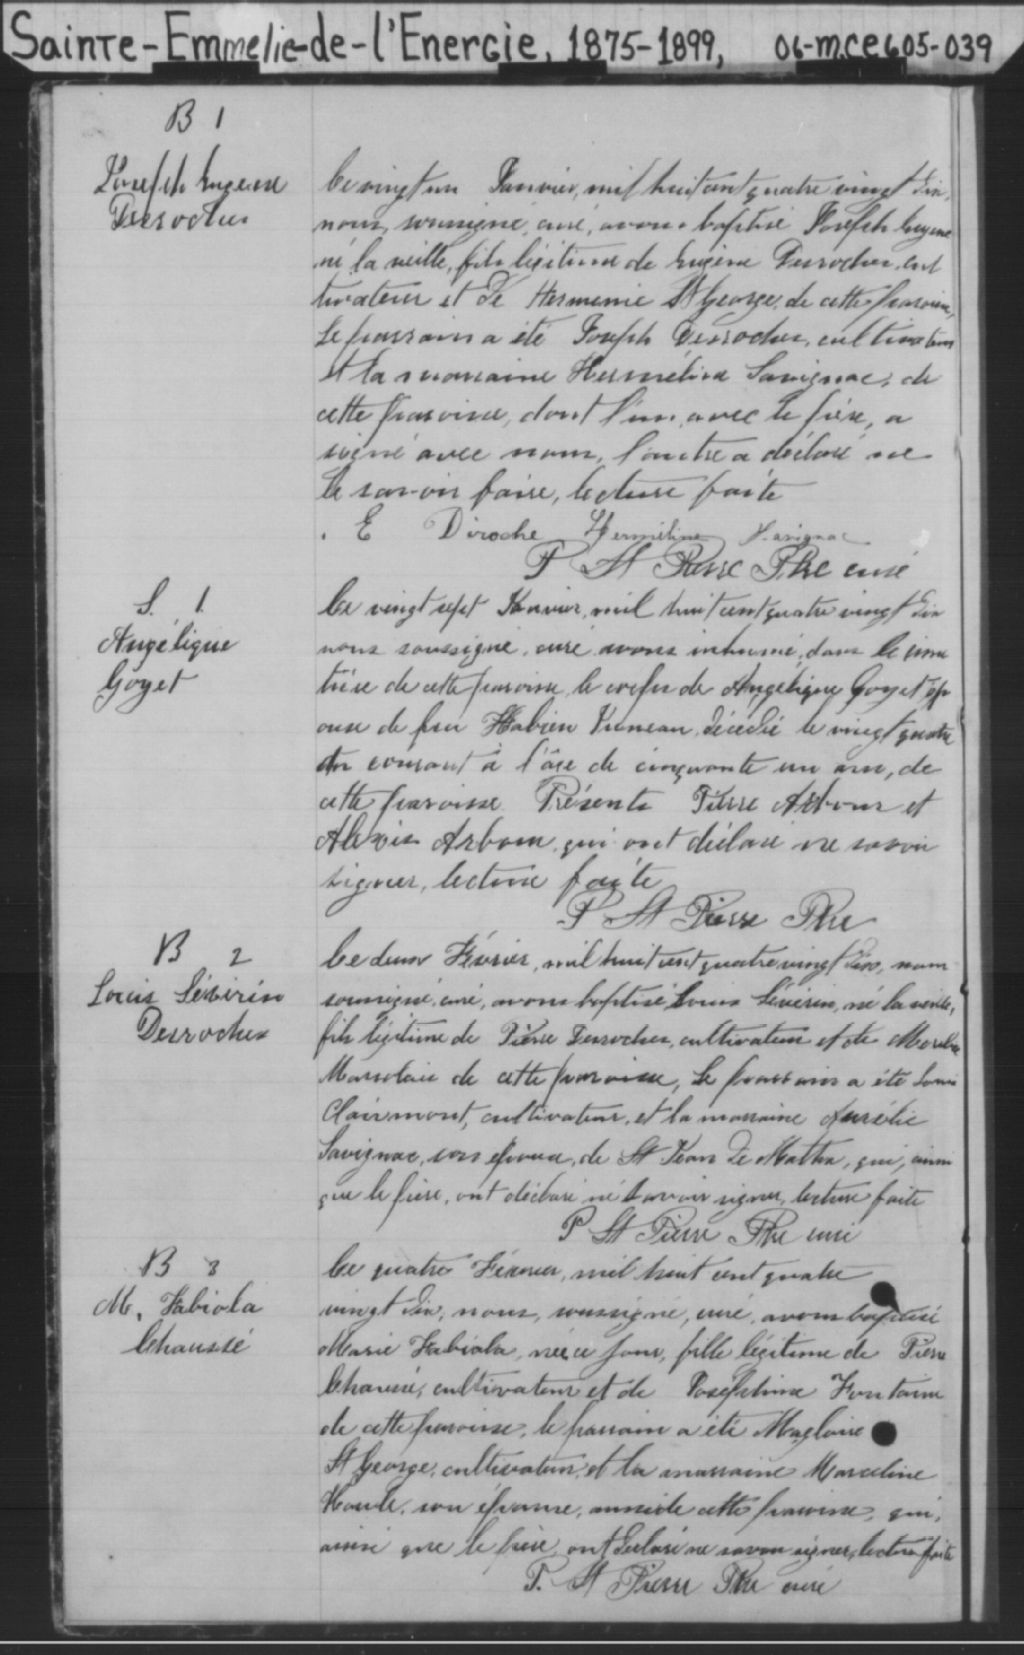 Sainte-Emmelie-de-l'Energie, 1875-1899, 06-M.CE605-039
B 1
Joseph Eugène
Desroches
Ce vingt un Janvier, mil huit cent quatre vingt dix,
nous, soussigné, curé, avons baptisé Joseph Eugène
né la veille, fils légitime de Eugène Desroches, cul
tivateur et de Hermenie St George, de cette paroisse,
Le parrain a été Joseph Desroches, cultivateur
et la marraine Herméline Savignac, de
cette paroisse, dont l'un, avec le père, a
signé avec nous, l'autre a déclaré ne
le savoir faire, lecture faite
E Diroche Herméline Savignac
P St Pierre Ptre curé
S. 1.
Angélique
Goyet
Ce vingt sept Janvier, mil huit cent quatre vingt dix
nous soussigné, curé avons inhumé, dans le cime
tière de cette paroisse, le corps de Angélique Goyet ép
ouse de feu Juneau, décédé le vingt quatre
du courant à l'âge de cinquante un ans, de
cette paroisse. Présents Pierre Arbour et
Alexis Arbour, qui ont déclaré ne savoir
signer, lecture faite
P St Pierre Ptre
B 2
Louis Sévérin
Desroches
Ce deux Février, mil huit cent quatre vingt dix, nous
soussigné, curé, avons baptisé Louis Sévérin, né la veille,
fils légitime de Pierre Desroches, cultivateur et de
de cette paroisse, Le parrain a été Louis
Clairmont, cultivateur, et la marraine Aurélie
Savignac, son épouse, de St Jean de Matha, qui, ainsi
que le père, ont déclaré ne savoir signer, lecture faite
P St Pierre Ptre curé
B 3
M. Fabiola
Chaussé
Ce quatre Février, mil huit cent quatre
vingt dix, nous, soussigné, curé, avons baptisé
Marie Fabiola, née ce jour, fille légitime de Pierre
Chaussé, cultivateur et de Joséphine Fontaine
de cette paroisse, le parrain a été Magloire
St George, cultivateur, et la marraine Marceline
Houle, son épouse, aussi de cette paroisse, qui,
ainsi que le père, ont déclaré ne savoir signer, lecture faite
P. St Pierre Ptre curé